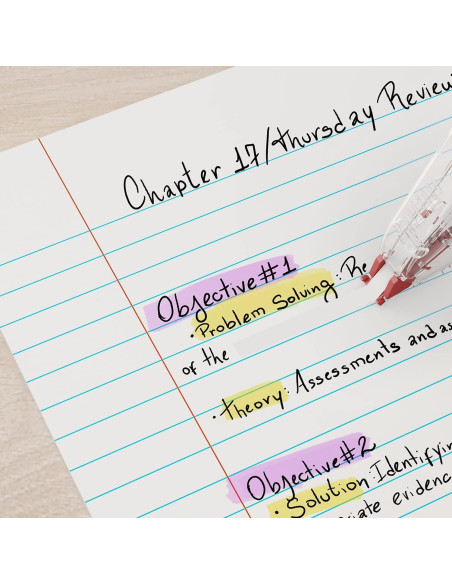 Chapter 17/Thursday Review
Objective #1
• Problem Solving: Re
of the
• Theory: Assessments and as
Objective #2
• Solution: Identifyin
ciate evidenc